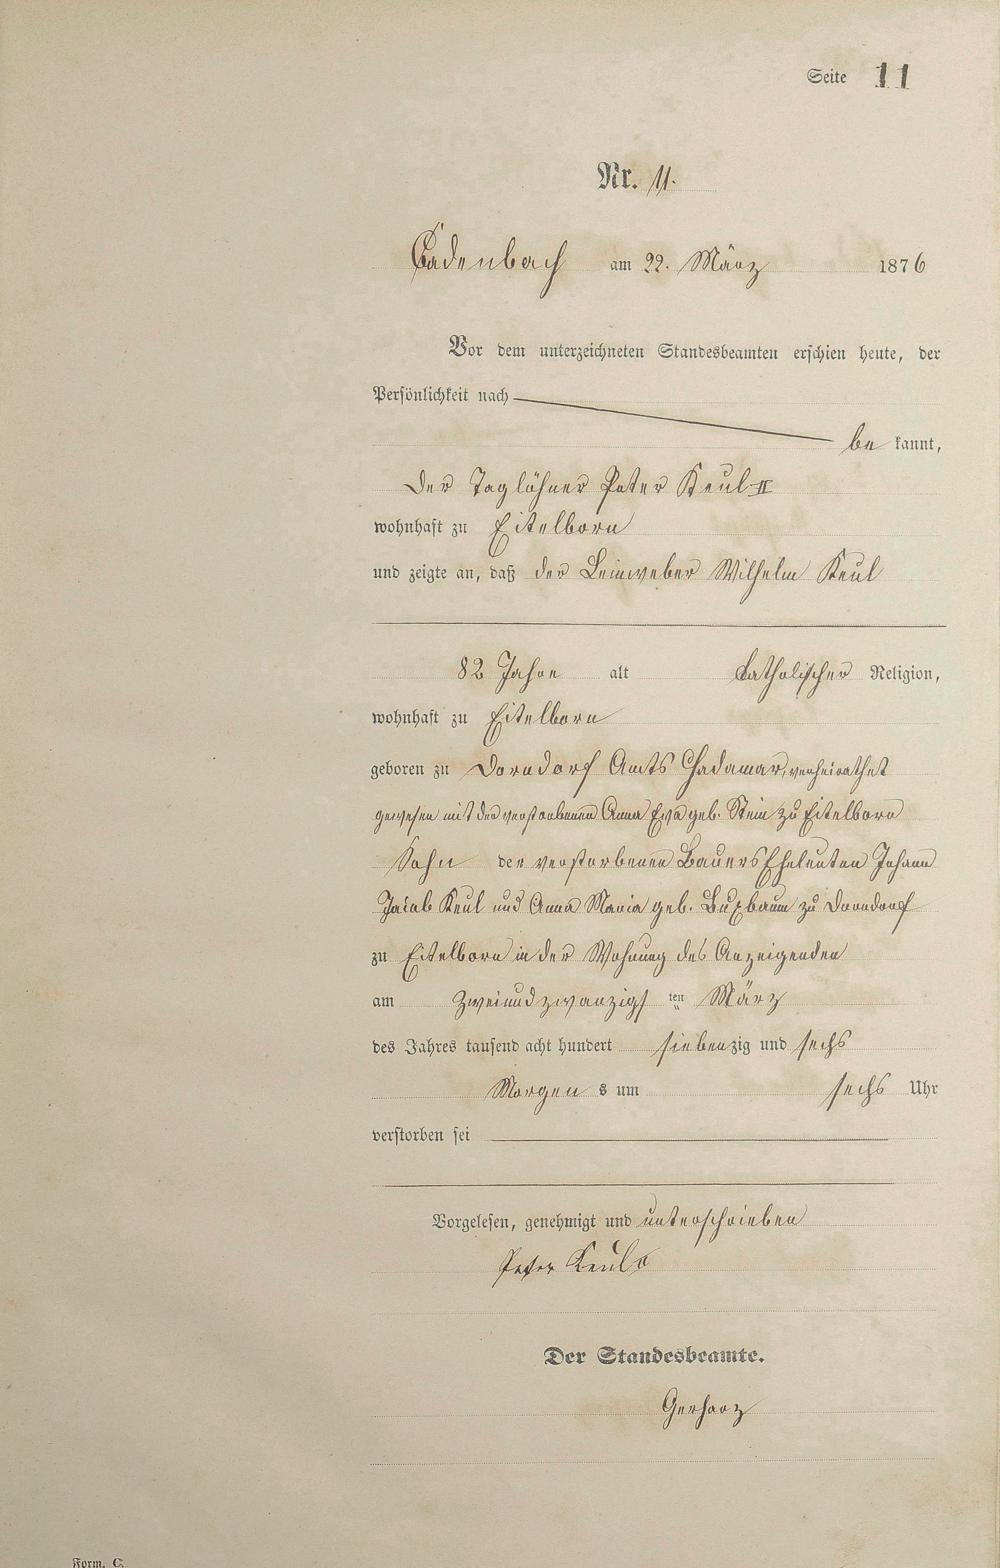 Seite 11
Nr. 11.
Cadenbach am 22. März 1876
Vor dem unterzeichneten Standesbeamten erschien heute, der
Persönlichkeit nach
be kannt,
der Taglöhner Peter Keul II
wohnhaft zu Eitelborn
und zeigte an, daß der Leinweber Wilhelm Keul
82 Jahre alt katholischer Religion,
wohnhaft zu Eitelborn
geboren zu Dorndorf Amts Hadamar, verheirathet
gewesen mit der verstorbenen Anna Eva geb. Stein zu Eitelborn
Sohn der verstorbenen Bauers Eheleuten Johann
Jacob Keul und Anna Maria geb. Buxbaum zu Dorndorf
zu Eitelborn in der Wohnung des Anzeigenden
am zweiundzwanzigs ten März
des Jahres tausend acht hundert siebenzig und sechs
Morgen s um sechs Uhr
verstorben sei
Vorgelesen, genehmigt und unterschrieben
Peter Keul
Der Standesbeamte.
Gerharz
Form. C.